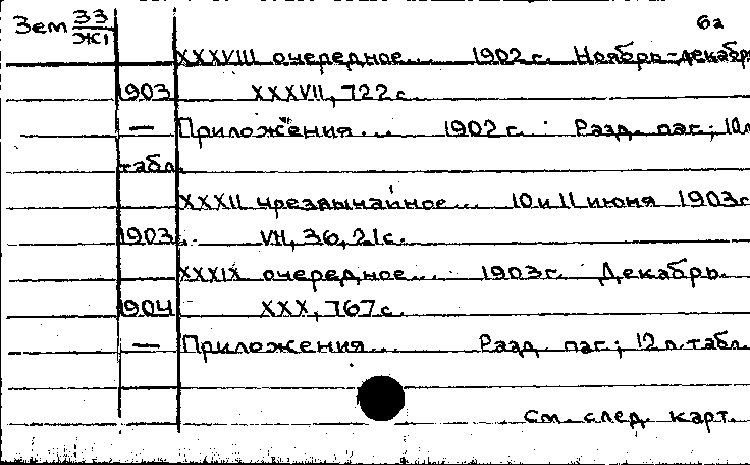 Зем 33/Ж1 6а
XXXVIII очередное... 1902 г. Ноябрь-декабрь
1903 XXXVII, 722 с.
— Приложения... 1902 г. Разд. паг.; 10 л.
табл.
XXXII чрезвычайное... 10 и 11 июня 1903 г.
1903. VII, 36, 21 с.
XXXIX очередное... 1903 г. Декабрь.
1904 XXX, 767 с.
— Приложения... Разд. паг.; 12 л. табл.
См. след. карт.